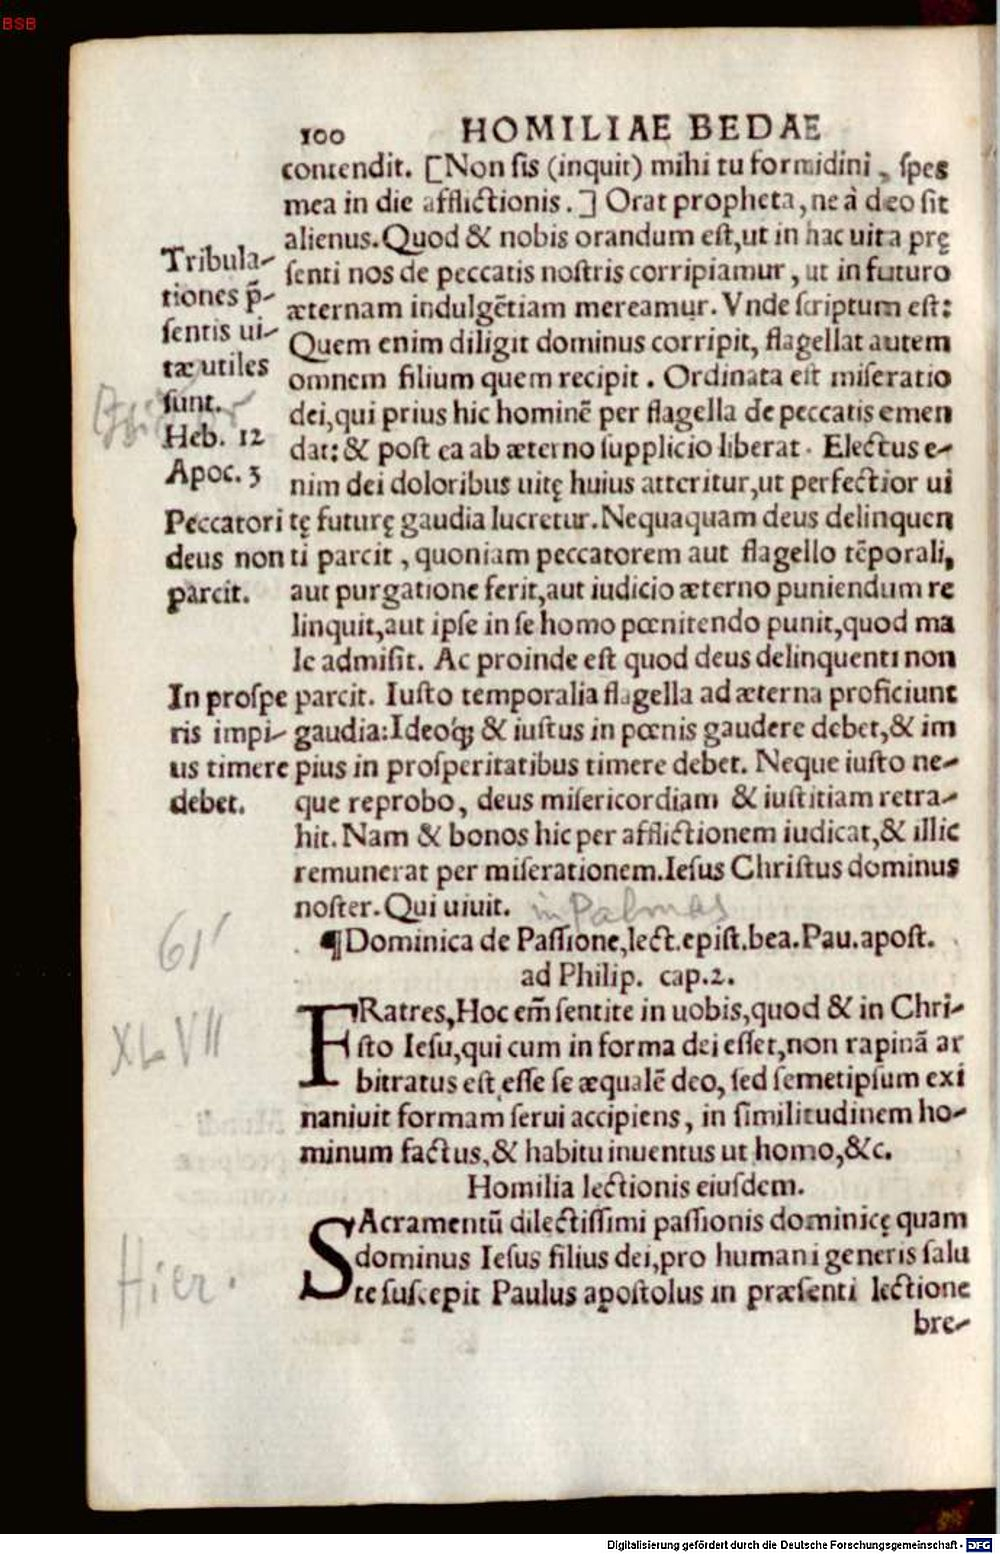 BSB
100 HOMILIAE BEDAE
contendit. [Non ſis (inquit) mihi tu formidini, ſpes
mea in die afflictionis.] Orat propheta, ne à deo ſit
alienus. Quod & nobis orandum eſt, ut in hac uita prę
ſenti nos de peccatis noſtris corripiamur, ut in futuro
æternam indulgẽtiam mereamur. Vnde ſcriptum eſt:
Quem enim diligit dominus corripit, flagellat autem
omnem filium quem recipit. Ordinata eſt miſeratio
dei, qui prius hic hominẽ per flagella de peccatis emen
dat: & poſt ea ab æterno ſupplicio liberat. Electus e-
nim dei doloribus uitę huius atteritur, ut perfectior ui
tę futurę gaudia lucretur. Nequaquam deus delinquen
ti parcit, quoniam peccatorem aut flagello tẽporali,
aut purgatione ferit, aut iudicio æterno puniendum re
linquit, aut ipſe in ſe homo pœnitendo punit, quod ma
le admiſit. Ac proinde eſt quod deus delinquenti non
parcit. Iuſto temporalia flagella ad æterna proficiunt
gaudia: Ideoq́; & iuſtus in pœnis gaudere debet, & im
pius in proſperitatibus timere debet. Neque iuſto ne-
que reprobo, deus miſericordiam & iuſtitiam retra-
hit. Nam & bonos hic per afflictionem iudicat, & illic
remunerat per miſerationem. Ieſus Chriſtus dominus
noſter. Qui uiuit. in Palmas
¶ Dominica de Paſſione, lect. epiſt. bea. Pau. apoſt.
ad Philip. cap. 2.
FRatres, Hoc em̃ ſentite in uobis, quod & in Chri-
ſto Ieſu, qui cum in forma dei eſſet, non rapinã ar
bitratus eſt eſſe ſe æqualẽ deo, ſed ſemetipſum exi
naniuit formam ſerui accipiens, in ſimilitudinem ho-
minum factus, & habitu inuentus ut homo, &c.
Homilia lectionis eiuſdem.
SAcramentũ dilectiſſimi paſſionis dominicę quam
dominus Ieſus filius dei, pro humani generis ſalu
te ſuſcepit Paulus apoſtolus in præſenti lectione
bre-
Tribula-
tiones p̃-
ſentis ui-
tæ utiles
ſunt.
Heb. 12
Apoc. 3
Peccatori
deus non
parcit.
In proſpe
ris impi-
us timere
debet.
61'
XLVII
Hier.
Digitalisierung gefördert durch die Deutsche Forschungsgemeinschaft - DFG